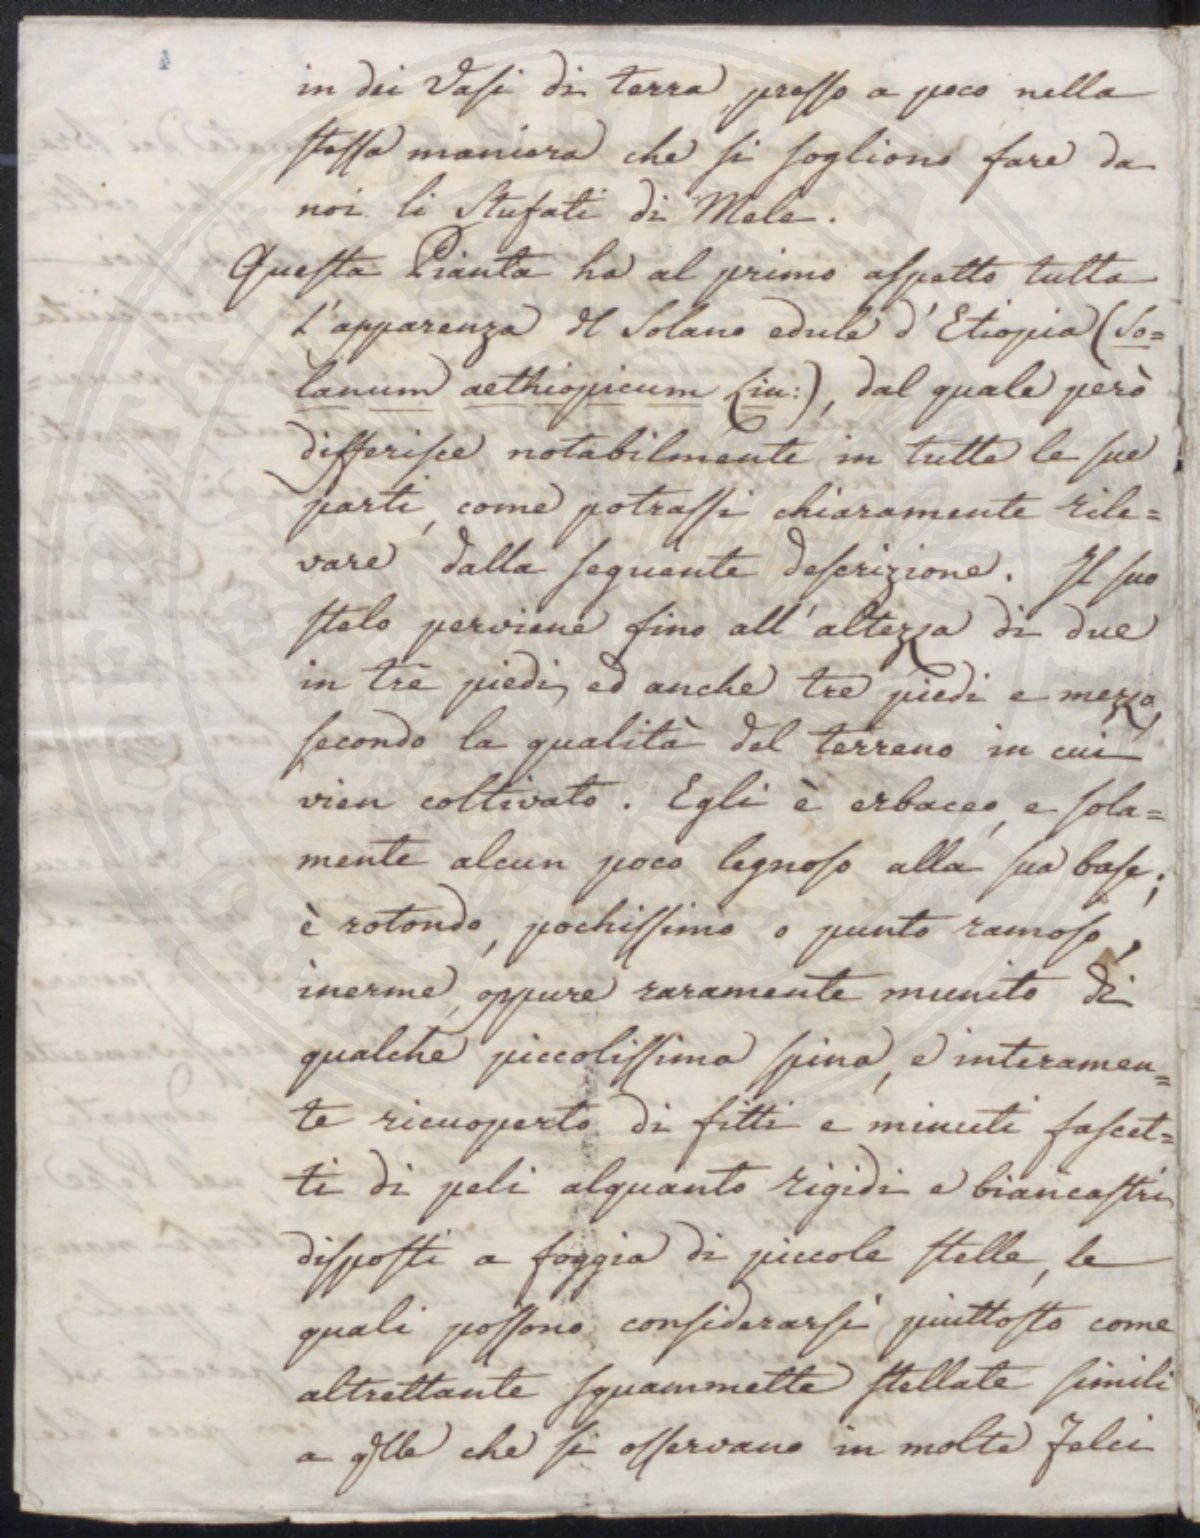 4
in dei Vasi di terra, presso a poco nella
stessa maniera che si sogliono fare da
noi li Stufati di Mele.
Questa Pianta ha al primo aspetto tutta
l'apparenza dl Solano edule d'Etiopia (So=
lanum aethiopicum Lin:), dal quale però
differisce notabilmente in tutte le sue
parti, come potrassi chiaramente rile=
vare dalla seguente descrizione. Il suo
stelo perviene fino all'altezza di due
in tre piedi, ed anche tre piedi e mezzo,
secondo la qualità del terreno in cui
vien coltivato. Egli è erbaceo, e sola=
mente alcun poco legnoso alla sua base;
è rotondo, pochissimo o punto ramoso,
inerme, oppure raramente munito di
qualche piccolissima spina, e interamen=
te ricuoperto di fitti e minuti fascet=
ti di peli alquanto rigidi e biancastri
disposti a foggia di piccole stelle, le
quali possono considerarsi piuttosto come
altrettante squammette stellate simili
a qlle che si osservano in molte Felci